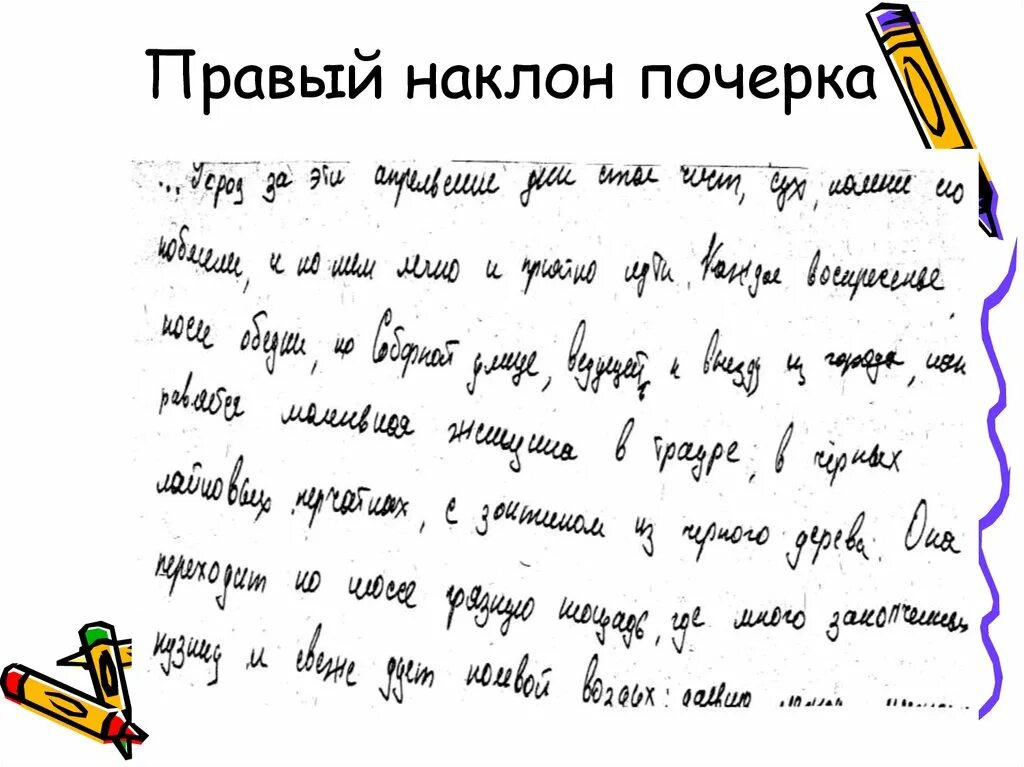 Правый наклон почерка
...Город за эти апрельские дни стал чист, сух, камни его
побелели, и по ним легко и приятно идти. Каждое воскресенье
после обедни, по Соборной улице, ведущей к выезду из города, нап
равляется маленькая женщина в трауре, в чёрных
лайковых перчатках, с зонтиком из черного дерева. Она
переходит по шоссе грязную площадь, где много закопченных
кузниц и свежо дует полевой воздух: далеко